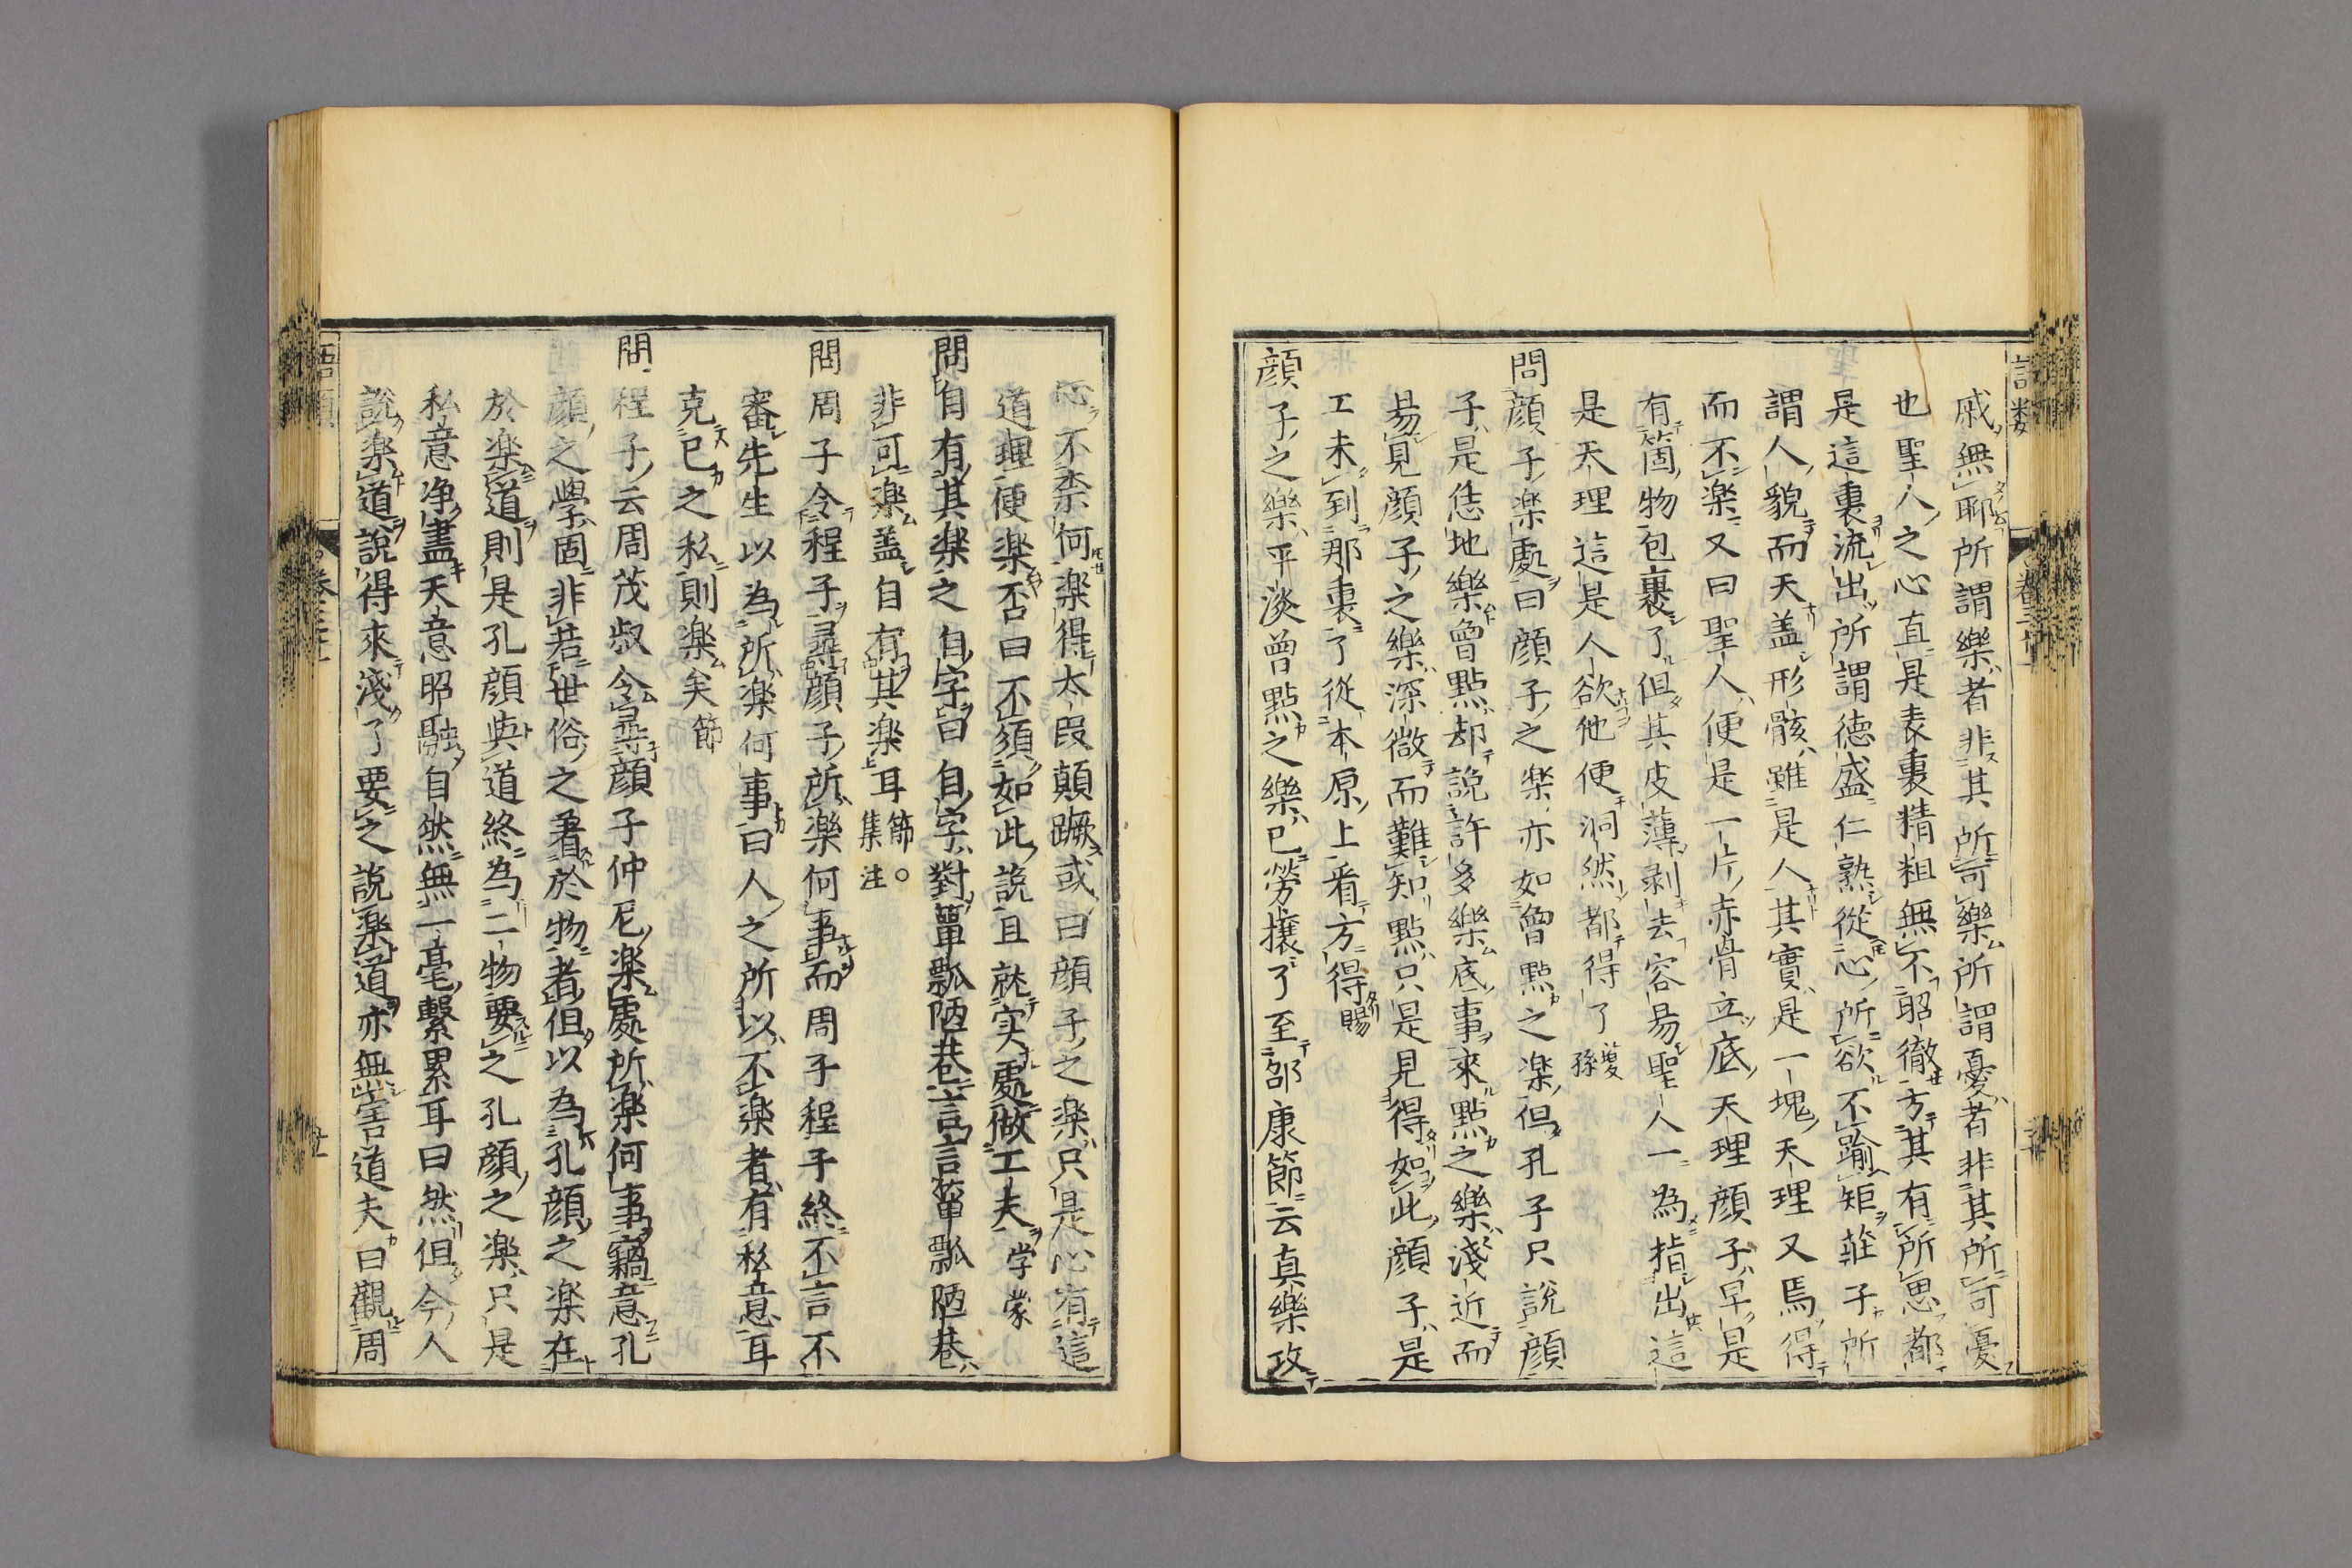 戚無聊所謂樂者非其所可樂所謂憂者非其所可憂
也聖人之心直是表裏精粗無不昭徹方其有所思都
是這裏流出所謂徳盛仁熟從心所欲不踰矩莊子所
謂人貌而天盖形骸雖是人其實是一塊天理又焉得
而不楽又曰聖人便是一片赤骨立底天理顔子早是
有箇物包裹了但其皮薄剥去容易聖人一為指出這
是天理這是人欲他便洞然都得了夔孫
問顔子楽處曰顔子之楽亦如曾點之楽但孔子只説顔
子是恁地樂曾點却説許多樂底事來點之樂淺近而
易見顔子之樂深微而難知點只是見得如此顔子是
工夫到那裏了從本原上看方得賜
顔子之樂平淡曾點之樂已勞攘了至邵康節云真樂攻
心不柰何楽得大段顛蹶或曰顔子之楽只是心有這
道理便楽否曰不須如此説且就実處做工夫学蒙
問自有其楽之自字曰自字對簞瓢陋巷言言簞瓢陋巷
非可楽盖自有其楽耳節集注○
問周子令程子尋顔子所楽何事而周子程子終不言不
審先生以為所楽何事曰人之所以不楽者有私意耳
克已之私則楽矣節
問程子云周茂叔令尋顔子仲尼楽處所楽何事竊意孔
顔之學固非若世俗之著於物者但以為孔顔之楽在
於楽道則是孔顔與道終為二物要之孔顔之楽只是
私意净盡天意昭融自然無一毫繫累耳曰然但今人
説楽道説得來淺了要之説楽道亦無害道夫曰觀周